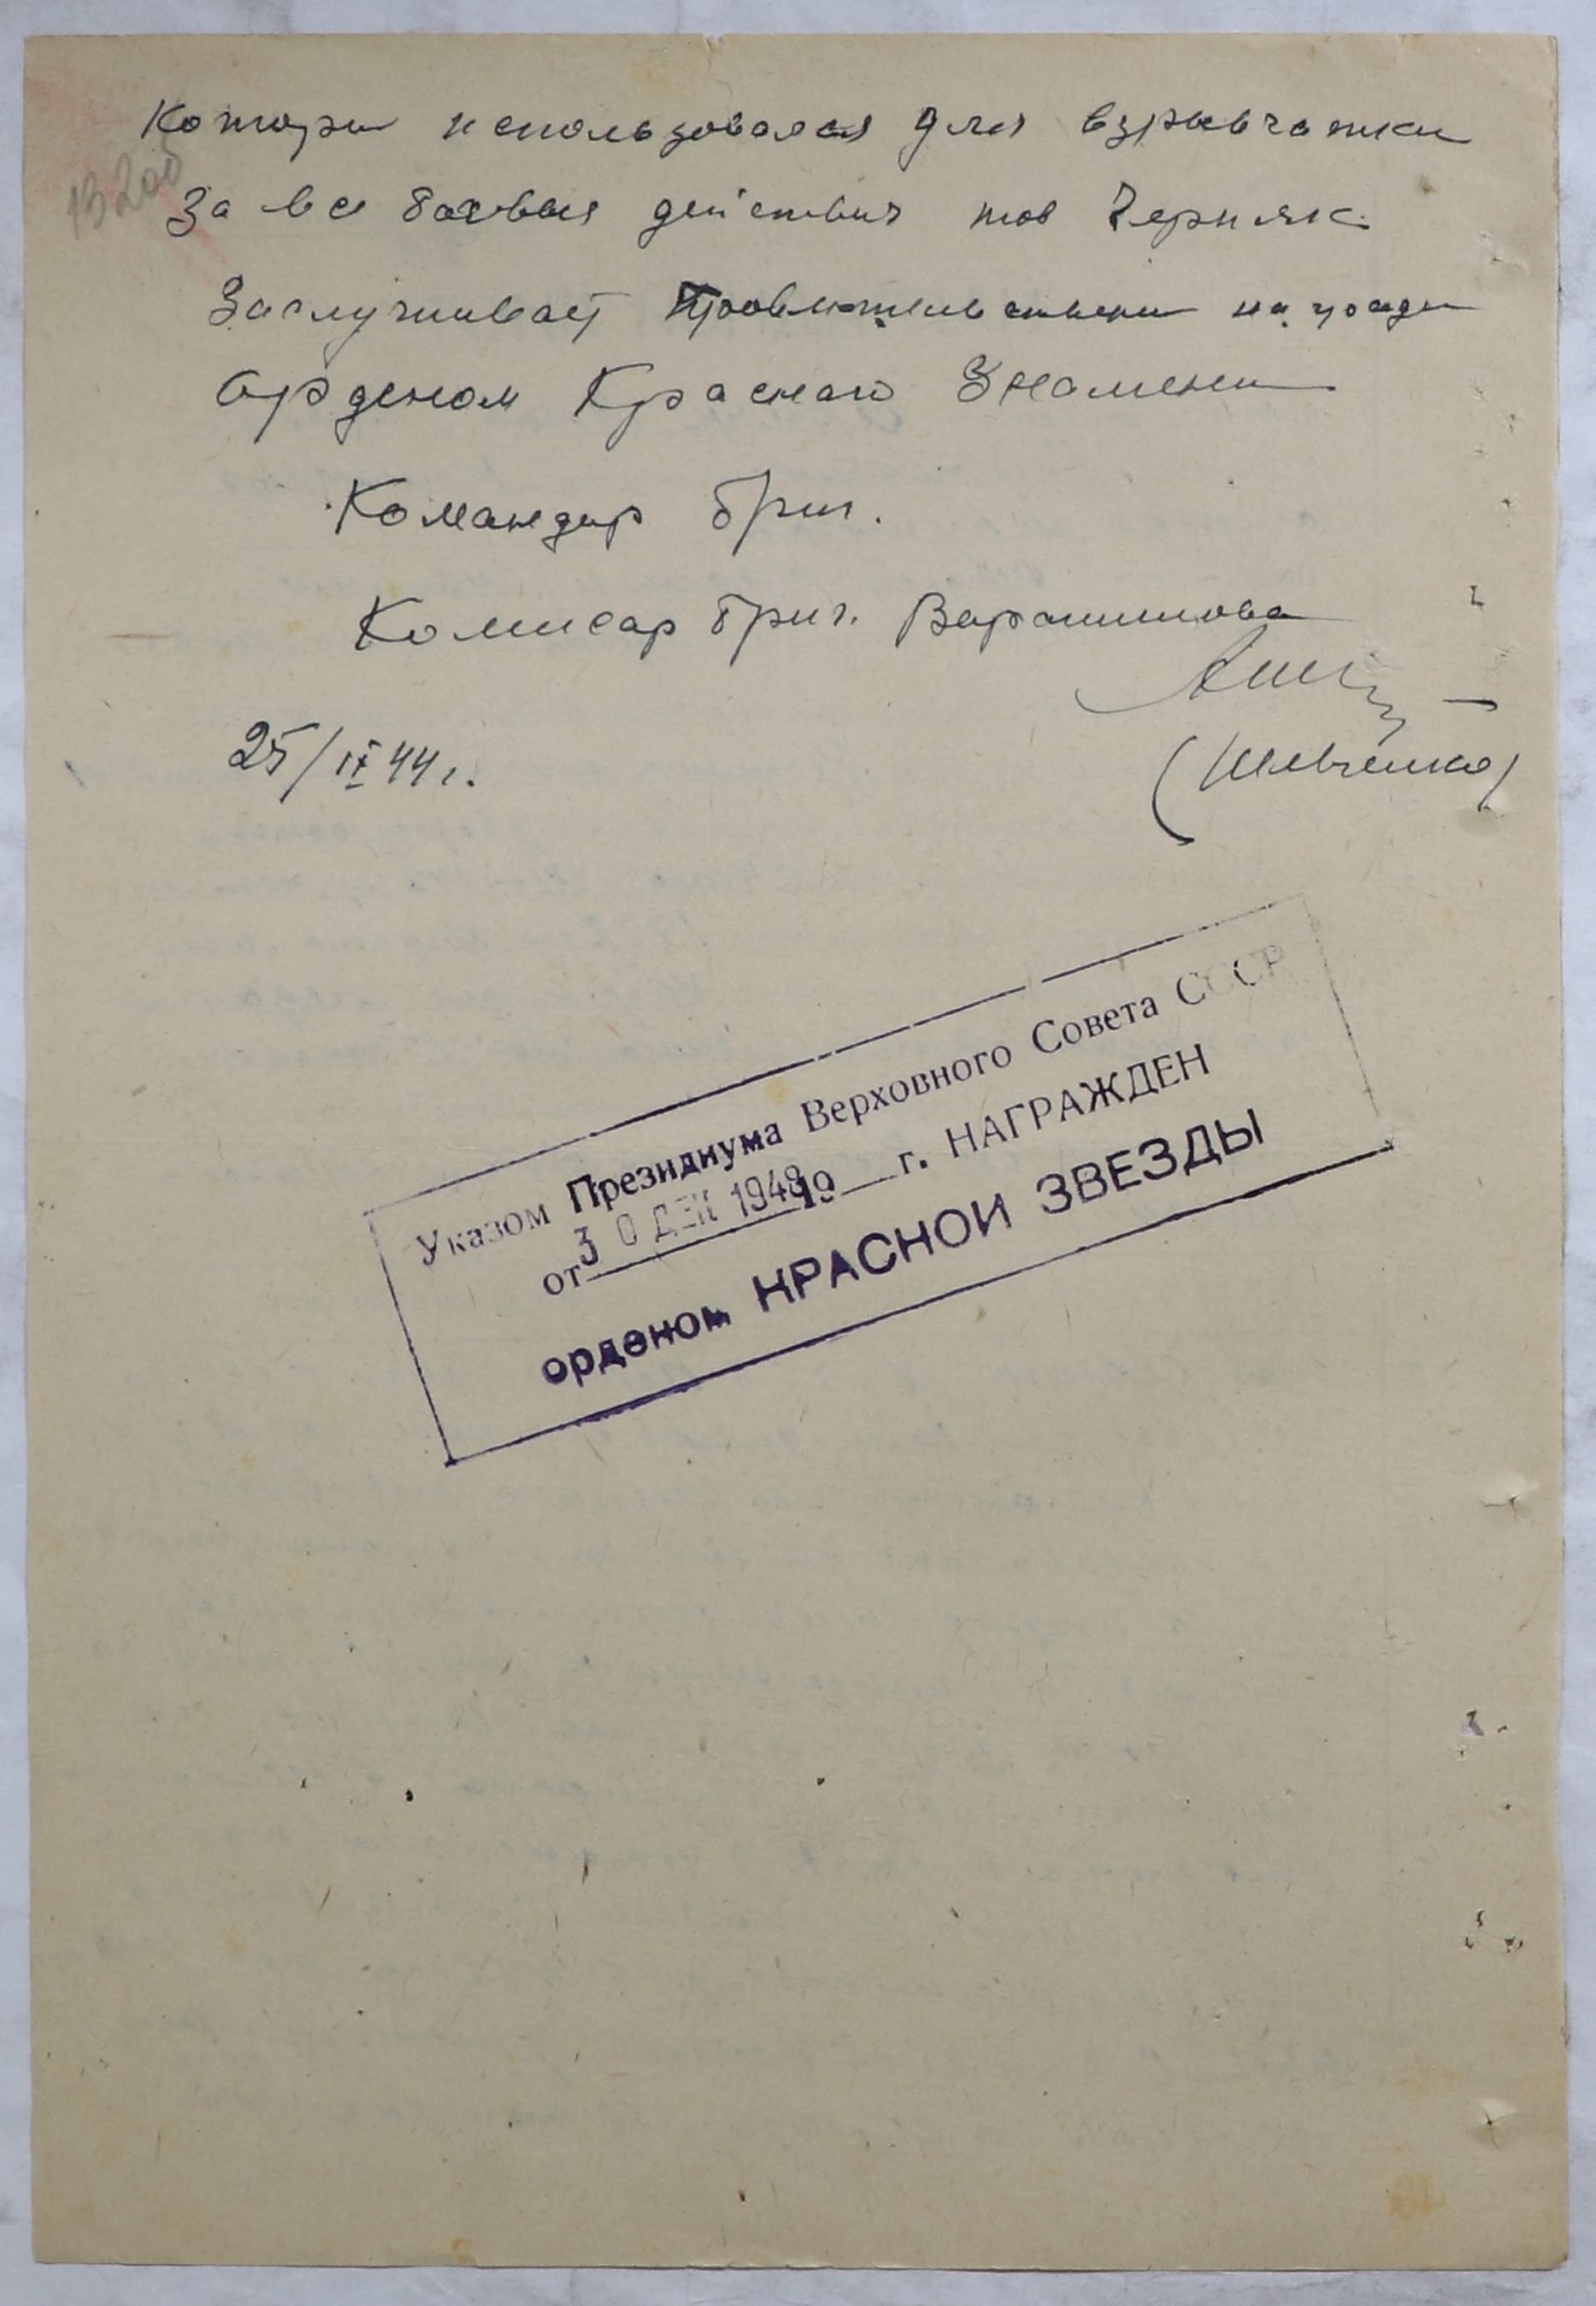 132об
Которы использовался для взрывчатки
За все боевыя действия тов Черняк
Заслуживает Правительствены награды
Орденом Краснаго Знамени
Командир бриг.
Комисар бриг. Варашилова
25/IX 44 г.
(Шевченко)
Указом Президиума Верховного Совета СССР
от 30 ДЕК 1948 19 г. НАГРАЖДЕН
орденом КРАСНОЙ ЗВЕЗДЫ